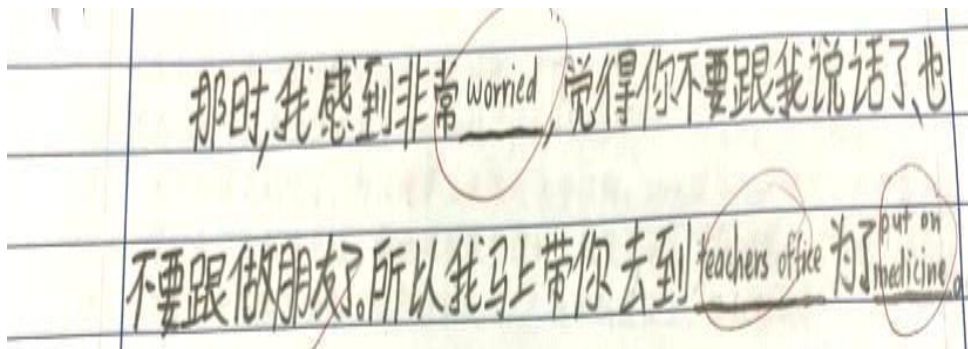 那时,我感到非常worried,觉得你不要跟我说话了、也
不要跟做朋友了。所以我马上带你去到teachers office为了put on medicine。